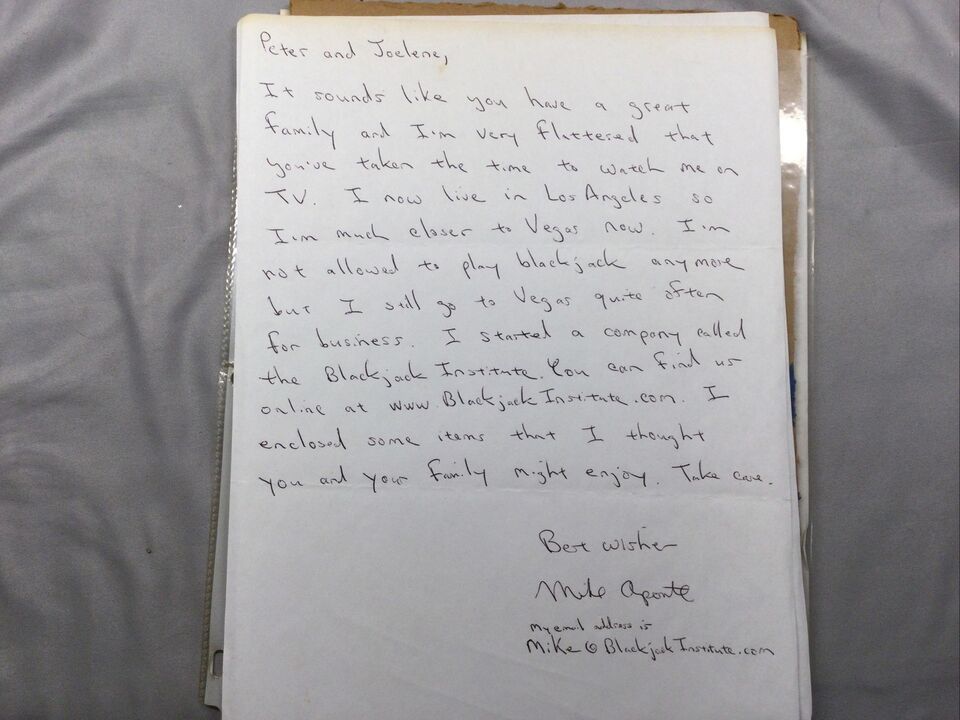 Peter and Joelene,
It sounds like you have a great
family and I'm very flattered that
you've taken the time to watch me on
TV. I now live in Los Angeles so
I'm much closer to Vegas now. I'm
not allowed to play blackjack anymore
but I still go to Vegas quite often
for business. I started a company called
the Blackjack Institute. You can find us
online at www.BlackjackInstitute.com. I
enclosed some items that I thought
you and your family might enjoy. Take care.
Best wishes
Mike Aponte
my email address is
Mike@BlackjackInstitute.com